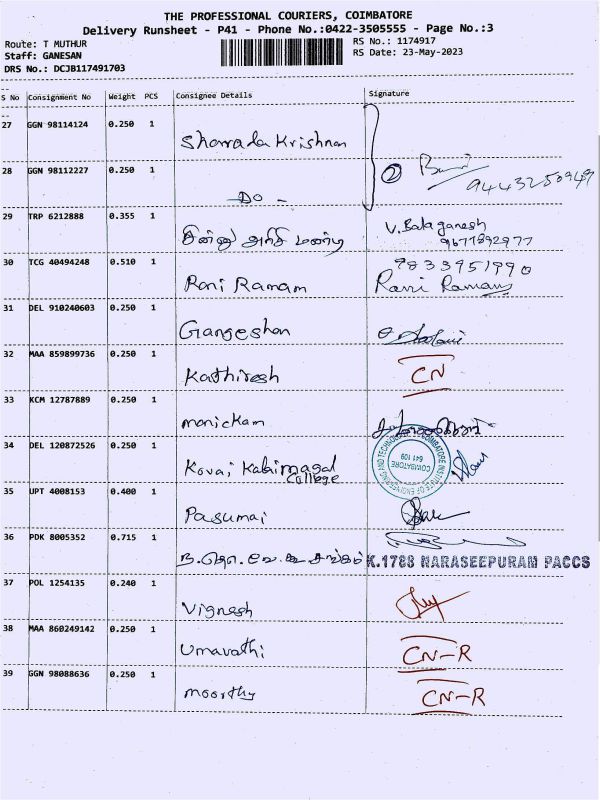 THE PROFESSIONAL COURIERS, COIMBATORE
Delivery Runsheet - P41 - Phone No.:0422-3505555 - Page No.:3
Route: T MUTHUR
RS No.: 1174917
Staff: GANESAN
RS Date: 23-May-2023
DRS No.: DCJB117491703
S No Consignment No Weight PCS Consignee Details Signature
27 GGN 98114124 0.250 1 Sharrada Krishnan
28 GGN 98112227 0.250 1 DO - ②
9443250949
29 TRP 6212888 0.355 1 சின்னு அரிசி மண்டி V. Balaganesh
9677892977
9833951990
30 TCG 40494248 0.510 1 Rani Ramam Rani Ramam
31 DEL 910240603 0.250 1 Gangeshan
32 MAA 859899736 0.250 1 Kathiresh CN
33 KCM 12787889 0.250 1 manickam
34 DEL 120872526 0.250 1 Kovai Kalaimagal College
COIMBATORE INSTITUTE OF ENGINEERING AND TECHNOLOGY
COIMBATORE
641 109
35 UPT 4008153 0.400 1 Pasumai
36 PDK 8005352 0.715 1 K.1788 NARASEEPURAM PACCS
37 POL 1254135 0.240 1 Vignesh
38 MAA 860249142 0.250 1 Umavathi CN-R
39 GGN 98088636 0.250 1 moorthy CN-R